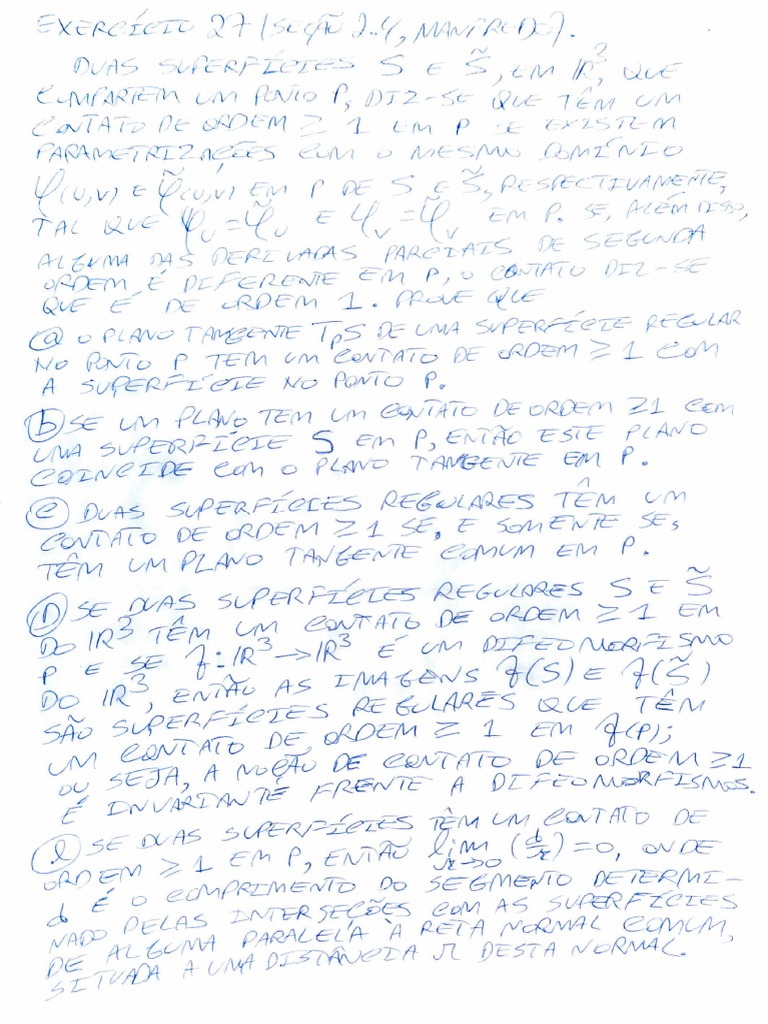 EXERCÍCIO 27 (SEÇÃO 2.4, MANFREDO).
DUAS SUPERFÍCIES S E S̃, EM ℝ³, QUE
COMPARTEM UM PONTO P, DIZ-SE QUE TÊM UM
CONTATO DE ORDEM ≥ 1 EM P SE EXISTEM
PARAMETRIZAÇÕES COM O MESMO DOMÍNIO
φ(u,v) E φ̃(u,v) EM P DE S E S̃, RESPECTIVAMENTE,
TAL QUE φ_u = φ̃_u E φ_v = φ̃_v EM P. SE, ALÉM DISSO,
ALGUMA DAS DERIVADAS PARCIAIS DE SEGUNDA
ORDEM É DIFERENTE EM P, O CONTATO DIZ-SE
QUE É DE ORDEM 1. PROVE QUE
(a) O PLANO TANGENTE TpS DE UMA SUPERFÍCIE REGULAR
NO PONTO P TEM UM CONTATO DE ORDEM ≥ 1 COM
A SUPERFÍCIE NO PONTO P.
(b) SE UM PLANO TEM UM CONTATO DE ORDEM ≥1 COM
UMA SUPERFÍCIE S EM P, ENTÃO ESTE PLANO
COINCIDE COM O PLANO TANGENTE EM P.
(c) DUAS SUPERFÍCIES REGULARES TÊM UM
CONTATO DE ORDEM ≥ 1 SE, E SOMENTE SE,
TÊM UM PLANO TANGENTE COMUM EM P.
(D) SE DUAS SUPERFÍCIES REGULARES S E S̃
DO ℝ³ TÊM UM CONTATO DE ORDEM ≥ 1 EM
P E SE f: ℝ³ → ℝ³ É UM DIFEOMORFISMO
DO ℝ³, ENTÃO AS IMAGENS f(S) E f(S̃)
SÃO SUPERFÍCIES REGULARES QUE TÊM
UM CONTATO DE ORDEM ≥ 1 EM f(P);
OU SEJA, A NOÇÃO DE CONTATO DE ORDEM ≥1
É INVARIANTE FRENTE A DIFEOMORFISMOS.
(e) SE DUAS SUPERFÍCIES TÊM UM CONTATO DE
ORDEM ≥ 1 EM P, ENTÃO lim r→0 (d/r) = 0, ONDE
d É O COMPRIMENTO DO SEGMENTO DETERMI-
NADO PELAS INTERSEÇÕES COM AS SUPERFÍCIES
DE ALGUMA PARALELA À RETA NORMAL COMUM,
SITUADA A UMA DISTÂNCIA r DESTA NORMAL.